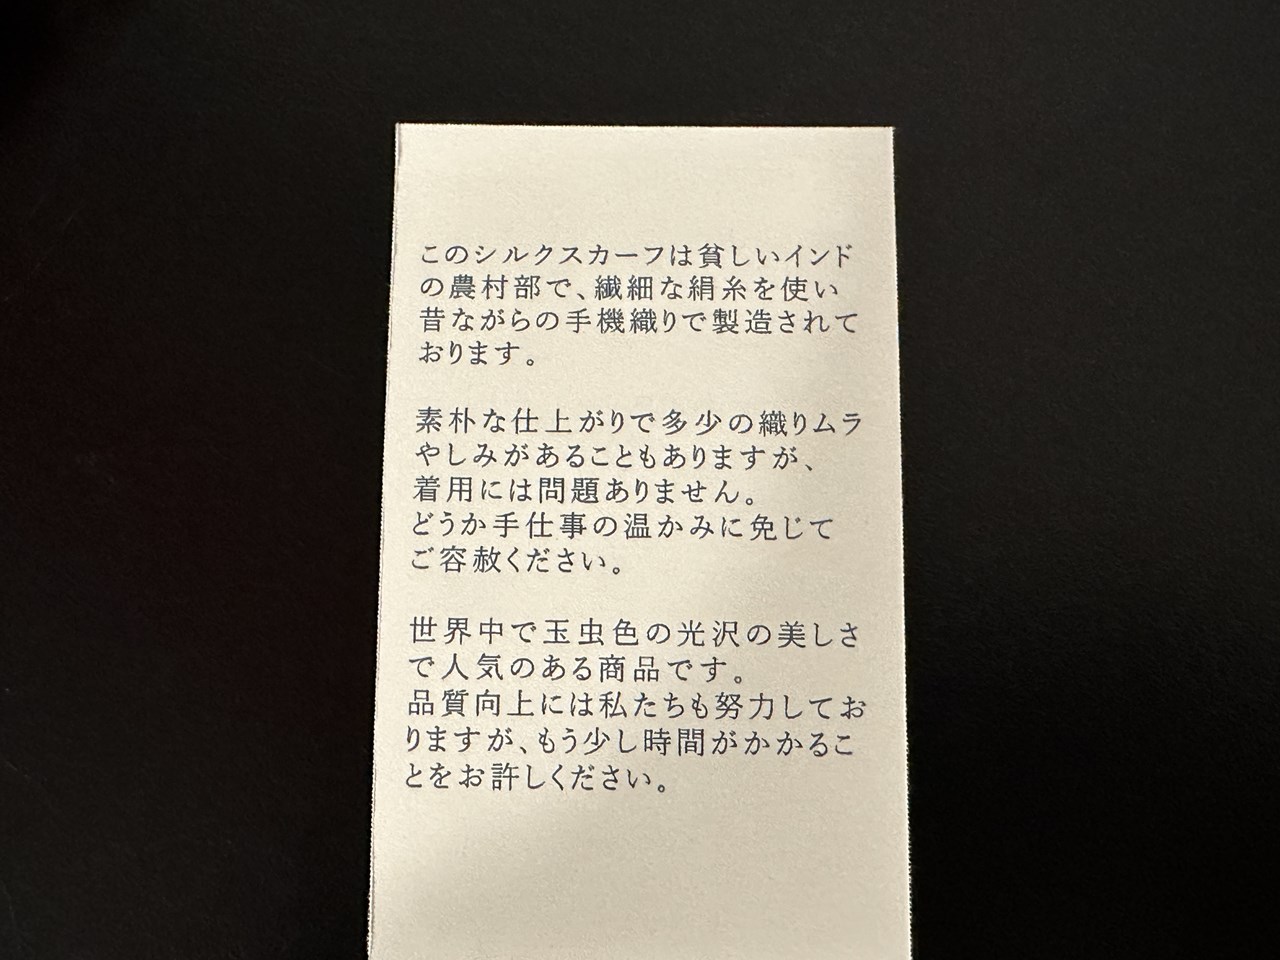 このシルクスカーフは貧しいインド
の農村部で、繊細な絹糸を使い
昔ながらの手機織りで製造されて
おります。
素朴な仕上がりで多少の織りムラ
やしみがあることもありますが、
着用には問題ありません。
どうか手仕事の温かみに免じて
ご容赦ください。
世界中で玉虫色の光沢の美しさ
で人気のある商品です。
品質向上には私たちも努力してお
りますが、もう少し時間がかかるこ
とをお許しください。